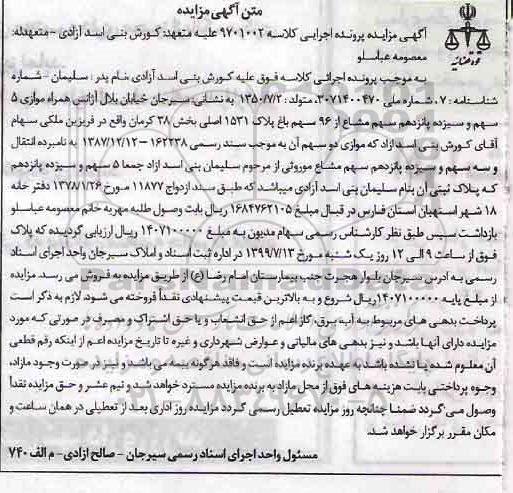 متن آگهی مزایده
آگهی مزایده پرونده اجرایی کلاسه ۹۷۰۱۰۰۲ علیه متعهد: کورش بنی اسد آزادی -متعهدله:
معصومه عباسلو
به موجب پرونده اجرائی کلاسه فوق علیه کورش بنی اسد آزادی ،نام پدر : سلیمان - شماره
شناسنامه : ۷، شماره ملی ۳۰۷۱۴۰۰۴۷۰، متولد: ۱۳۵۰/۷/۲ به نشانی: سیرجان خیابان بلال آژانس همراه موازی ۵
سهم و سیزده پانزدهم سهم مشاع از ۹۶ سهم باغ پلاک ۱۵۳۱ اصلی بخش ۳۸ کرمان واقع در فریزین ملکی سهام
آقای کورش بنی اسد آزاد که موازی دو سهم آن به موجب سند رسمی ۱۶۲۳۸ - ۱۳۸۷/۱۲/۱۲ به نامبرده انتقال
و سه سهم و سیزده پانزدهم سهم مشاع موروثی از مرحوم سلیمان بنی اسد آزاد جمعا ۵ سهم و سیزده پانزدهم
که پلاک ثبتی آن بنام سلیمان بنی اسد آزادی میباشد که طبق سند ازدواج ۱۱۸۷۷ مورخ ۱۳۷۸/۱/۲۶ دفتر خانه
۱۸ شهر استهبان استان فارس در قبال مبلغ ۱۶۸۴۷۶۲۱۰۵ ریال بابت وصول طلبه مهریه خانم معصومه عباسلو
بازداشت سپس طبق نظر کارشناس رسمی سهام مدیون به مبلغ ۱۴۰۷۱۰۰۰۰۰ ریال ارزیابی گردیده که پلاک
فوق از ساعت ۹ الی ۱۲ روز یک شنبه مورخ ۱۳۹۹/۷/۱۳ در اداره ثبت اسناد و املاک سیرجان واحد اجرای اسناد
رسمی به آدرس سیرجان بلوار هجرت جنب بیمارستان امام رضا (ع) از طریق مزایده به فروش می رسد. مزایده
از مبلغ پایه ۱۴۰۷۱۰۰۰۰۰ ریال شروع و به بالاترین قیمت پیشنهادی نقداً فروخته می شود. لازم به ذکر است
پرداخت بدهی های مربوط به آب، برق، گاز اعم از حق انشعاب و یا حق اشتراک و مصرف در صورتی که مورد
مزایده دارای آنها باشد و نیز بدهی های مالیاتی و عوارض شهرداری و غیره تا تاریخ مزایده اعم از اینکه رقم قطعی
آن معلوم شده یا نشده باشد به عهده برنده مزایده است و فاقد هرگونه بیمه می باشد و نیز در صورت وجود مازاد،
وجوه پرداختی بابت هزینه های فوق از محل مازاد به برنده مزایده مسترد خواهد شد و نیم عشر و حق مزایده نقداً
وصول می گردد ضمنا چنانچه روز مزایده تعطیل رسمی گردد مزایده روز اداری بعد از تعطیلی در همان ساعت و
مکان مقرر برگزار خواهد شد.
مسئول واحد اجرای اسناد رسمی سیرجان - صالح ازادی- م الف ۷۴۰